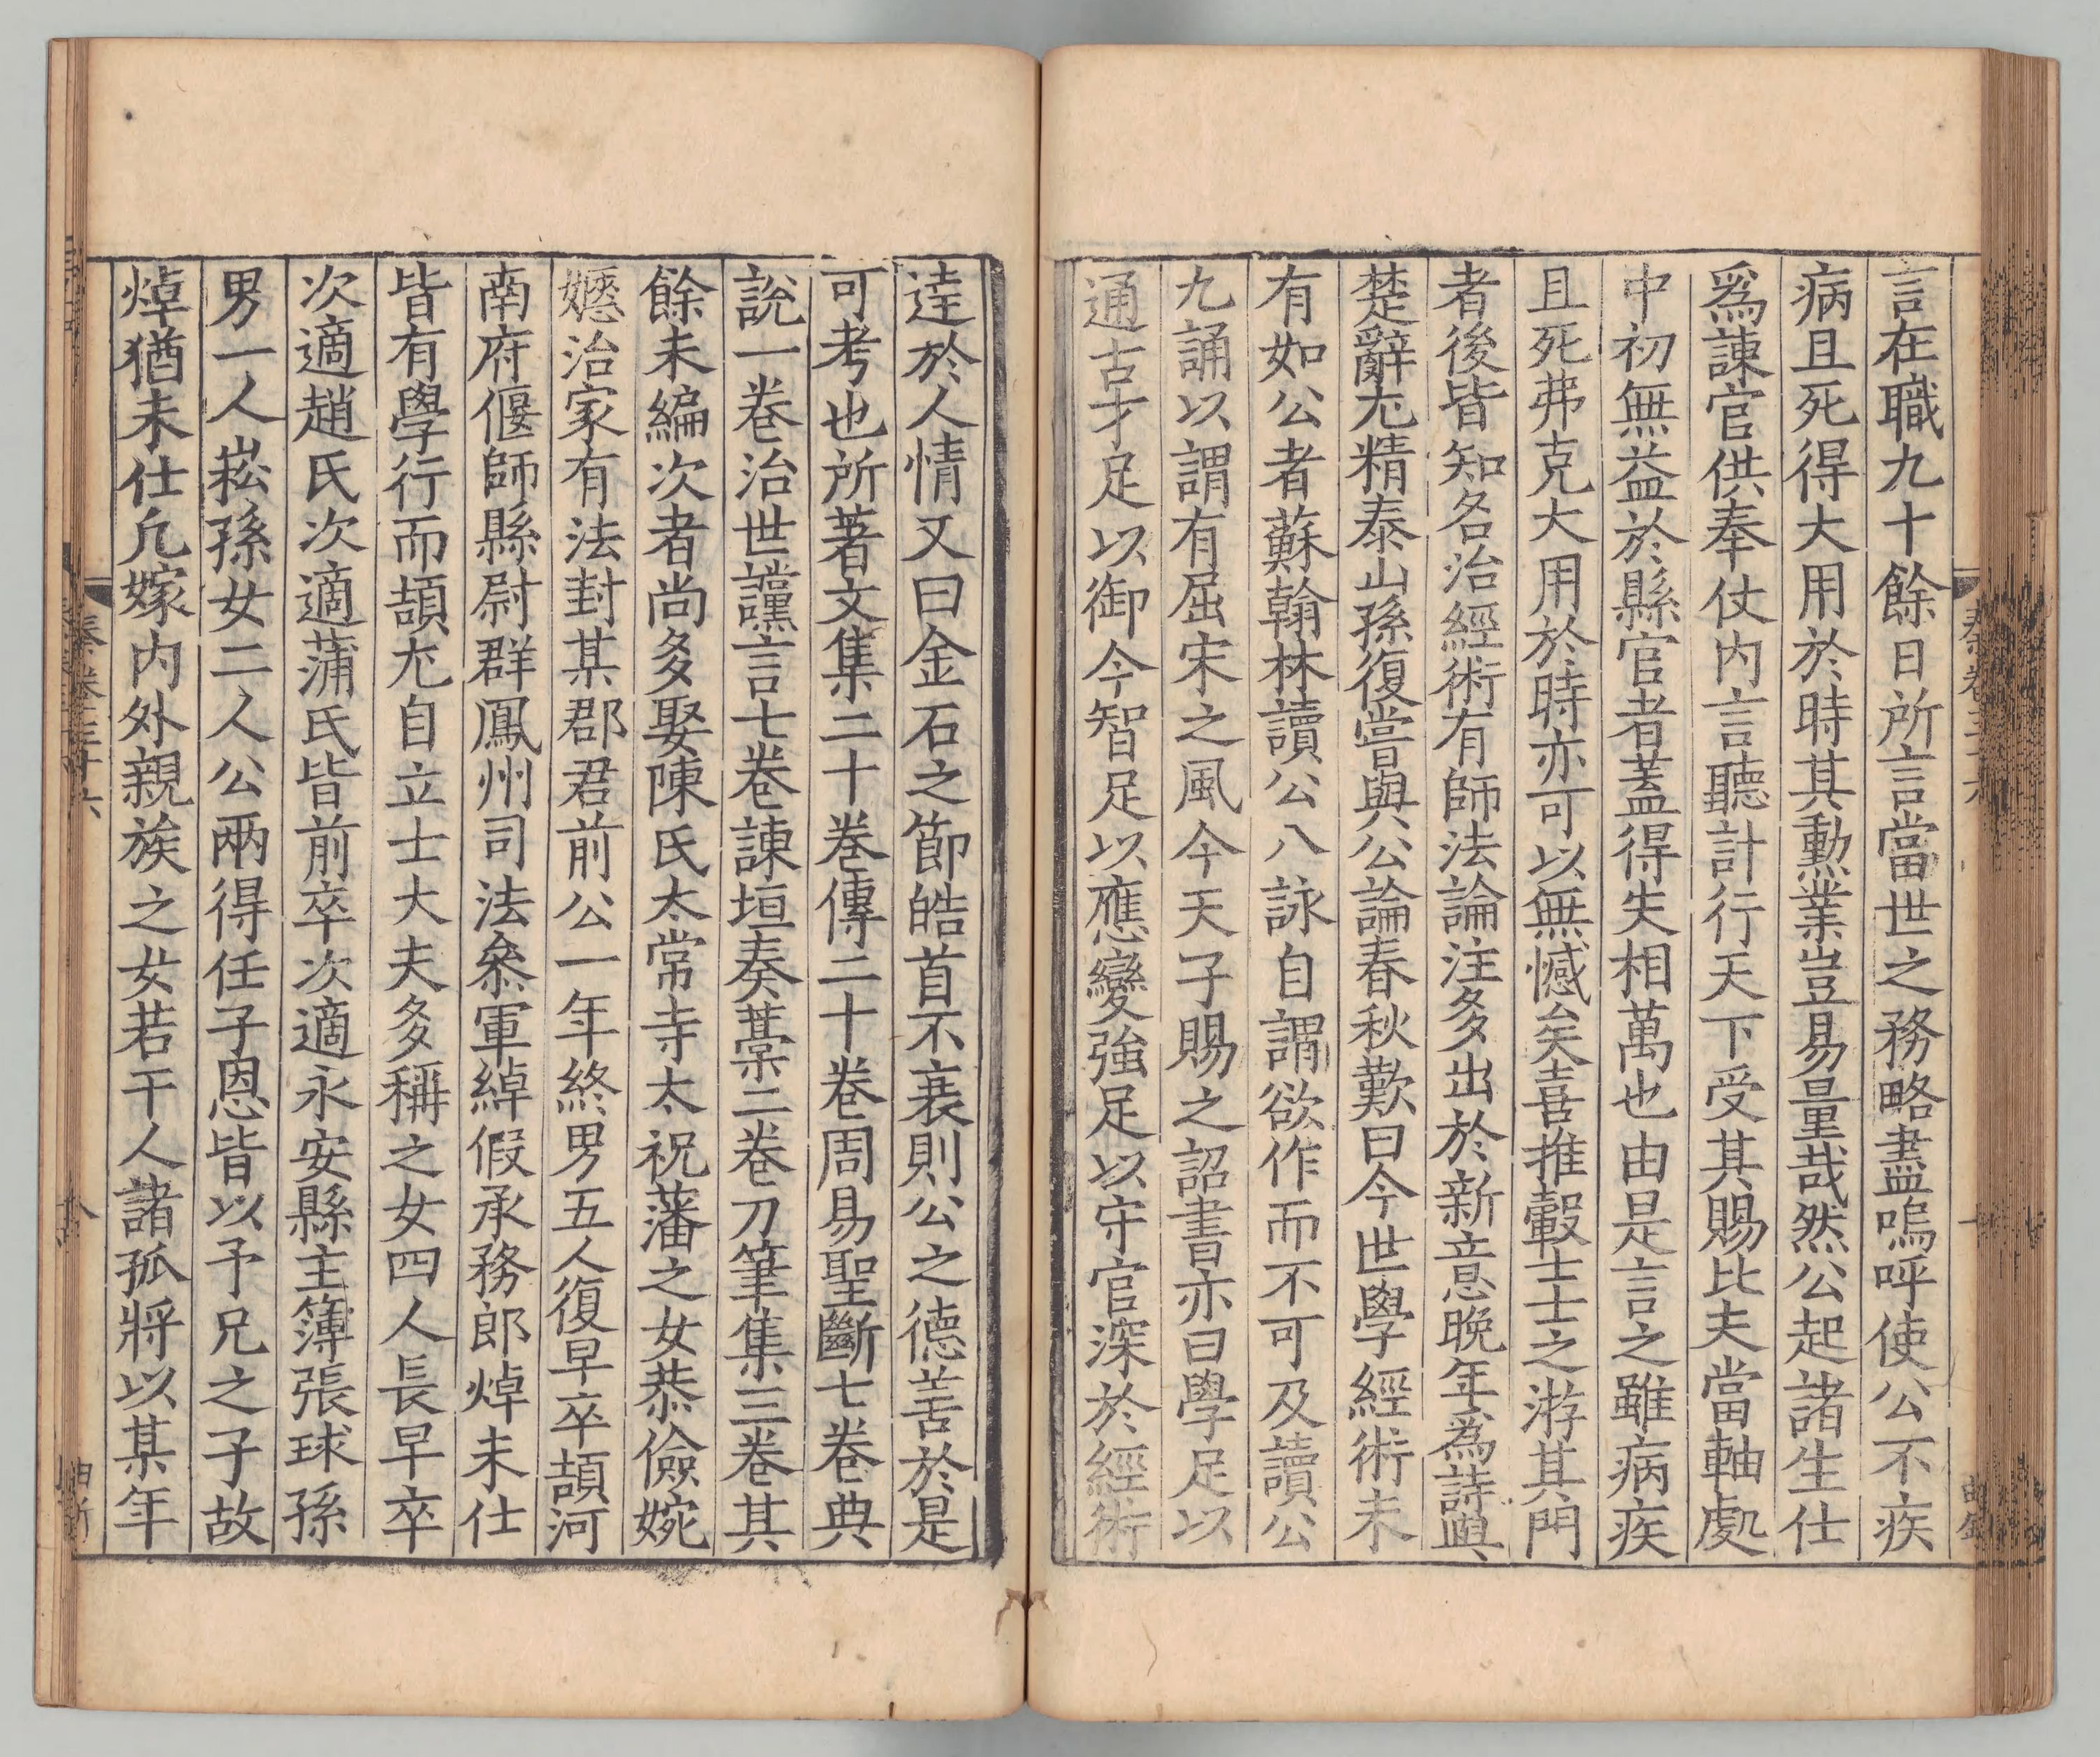 言在職九十餘日所言當世之務略盡嗚呼使公不疾
病且死得大用於時其勳業豈易量哉然公起諸生仕
爲諫官供奉仗內言聽計行天下受其賜比夫當軸處
中初無益於縣官者蓋得失相萬也由是言之雖病疾
且死弗克大用於時亦可以無憾矣喜推轂士士之游其門
者後皆知名治經術有師法論注多出於新意晚年為詩與
楚辭尤精泰山孫復嘗與公論春秋歎曰今世學經術未
有如公者蘇翰林讀公八詠自謂欲作而不可及讀公
九誦以謂有屈宋之風今天子賜之詔書亦曰學足以
通古才足以御今智足以應變強足以守官深於經術
逹於人情又曰金石之節皓首不衰則公之德善於是
可考也所著文集二十卷傳二十卷周易聖斷七卷典
說一卷治世讜言七卷諫垣奏藁二卷刀筆集三卷其
餘未編次者尚多娶陳氏太常寺太祝藩之女恭儉婉
嬺治家有法封某郡君前公一年終男五人復早卒頡河
南府偃師縣尉群鳳州司法叅軍綽假承務郎焯未仕
皆有學行而頡尤自立士大夫多稱之女四人長早卒
次適趙氏次適蒲氏皆前卒次適永安縣主簿張球孫
男一人崧孫女二人公兩得任子恩皆以予兄之子故
焯猶未仕凡嫁內外親族之女若干人諸孤將以某年
秦卷三十六
八